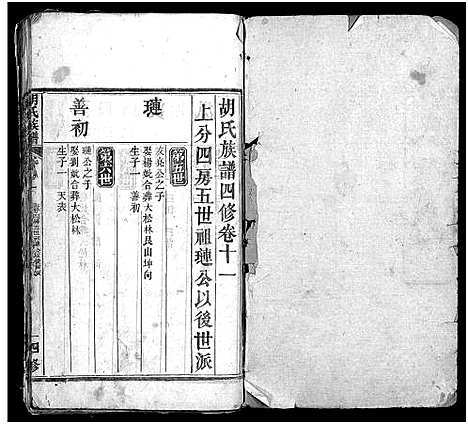 胡氏族譜四修卷十一
上分四房五世祖璉公以後世派
第五世
璉
友亮公之子
娶楊氏合葬大松林艮山坤向
生子一 善初
第六世
善初
璉公之子
娶劉氏合葬大松林
生子一 天表
胡氏族譜
四修